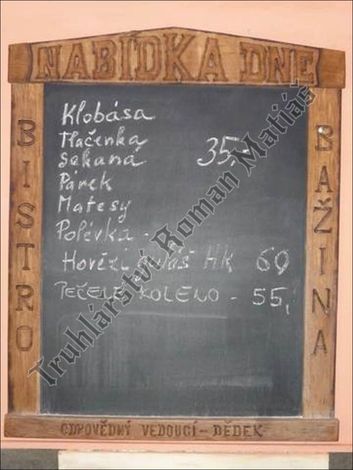 NABÍDKA DNE
BISTRO
BAŽINA
Klobása
Tlačenka
Sekaná 35,-
Párek
Matesy
Polévka -
Hověz. guláš HK 60
PEČENÉ KOLENO - 55,
ODPOVĚDNÝ VEDOUCÍ - DĚDEK
Truhlářství Roman Matiáš